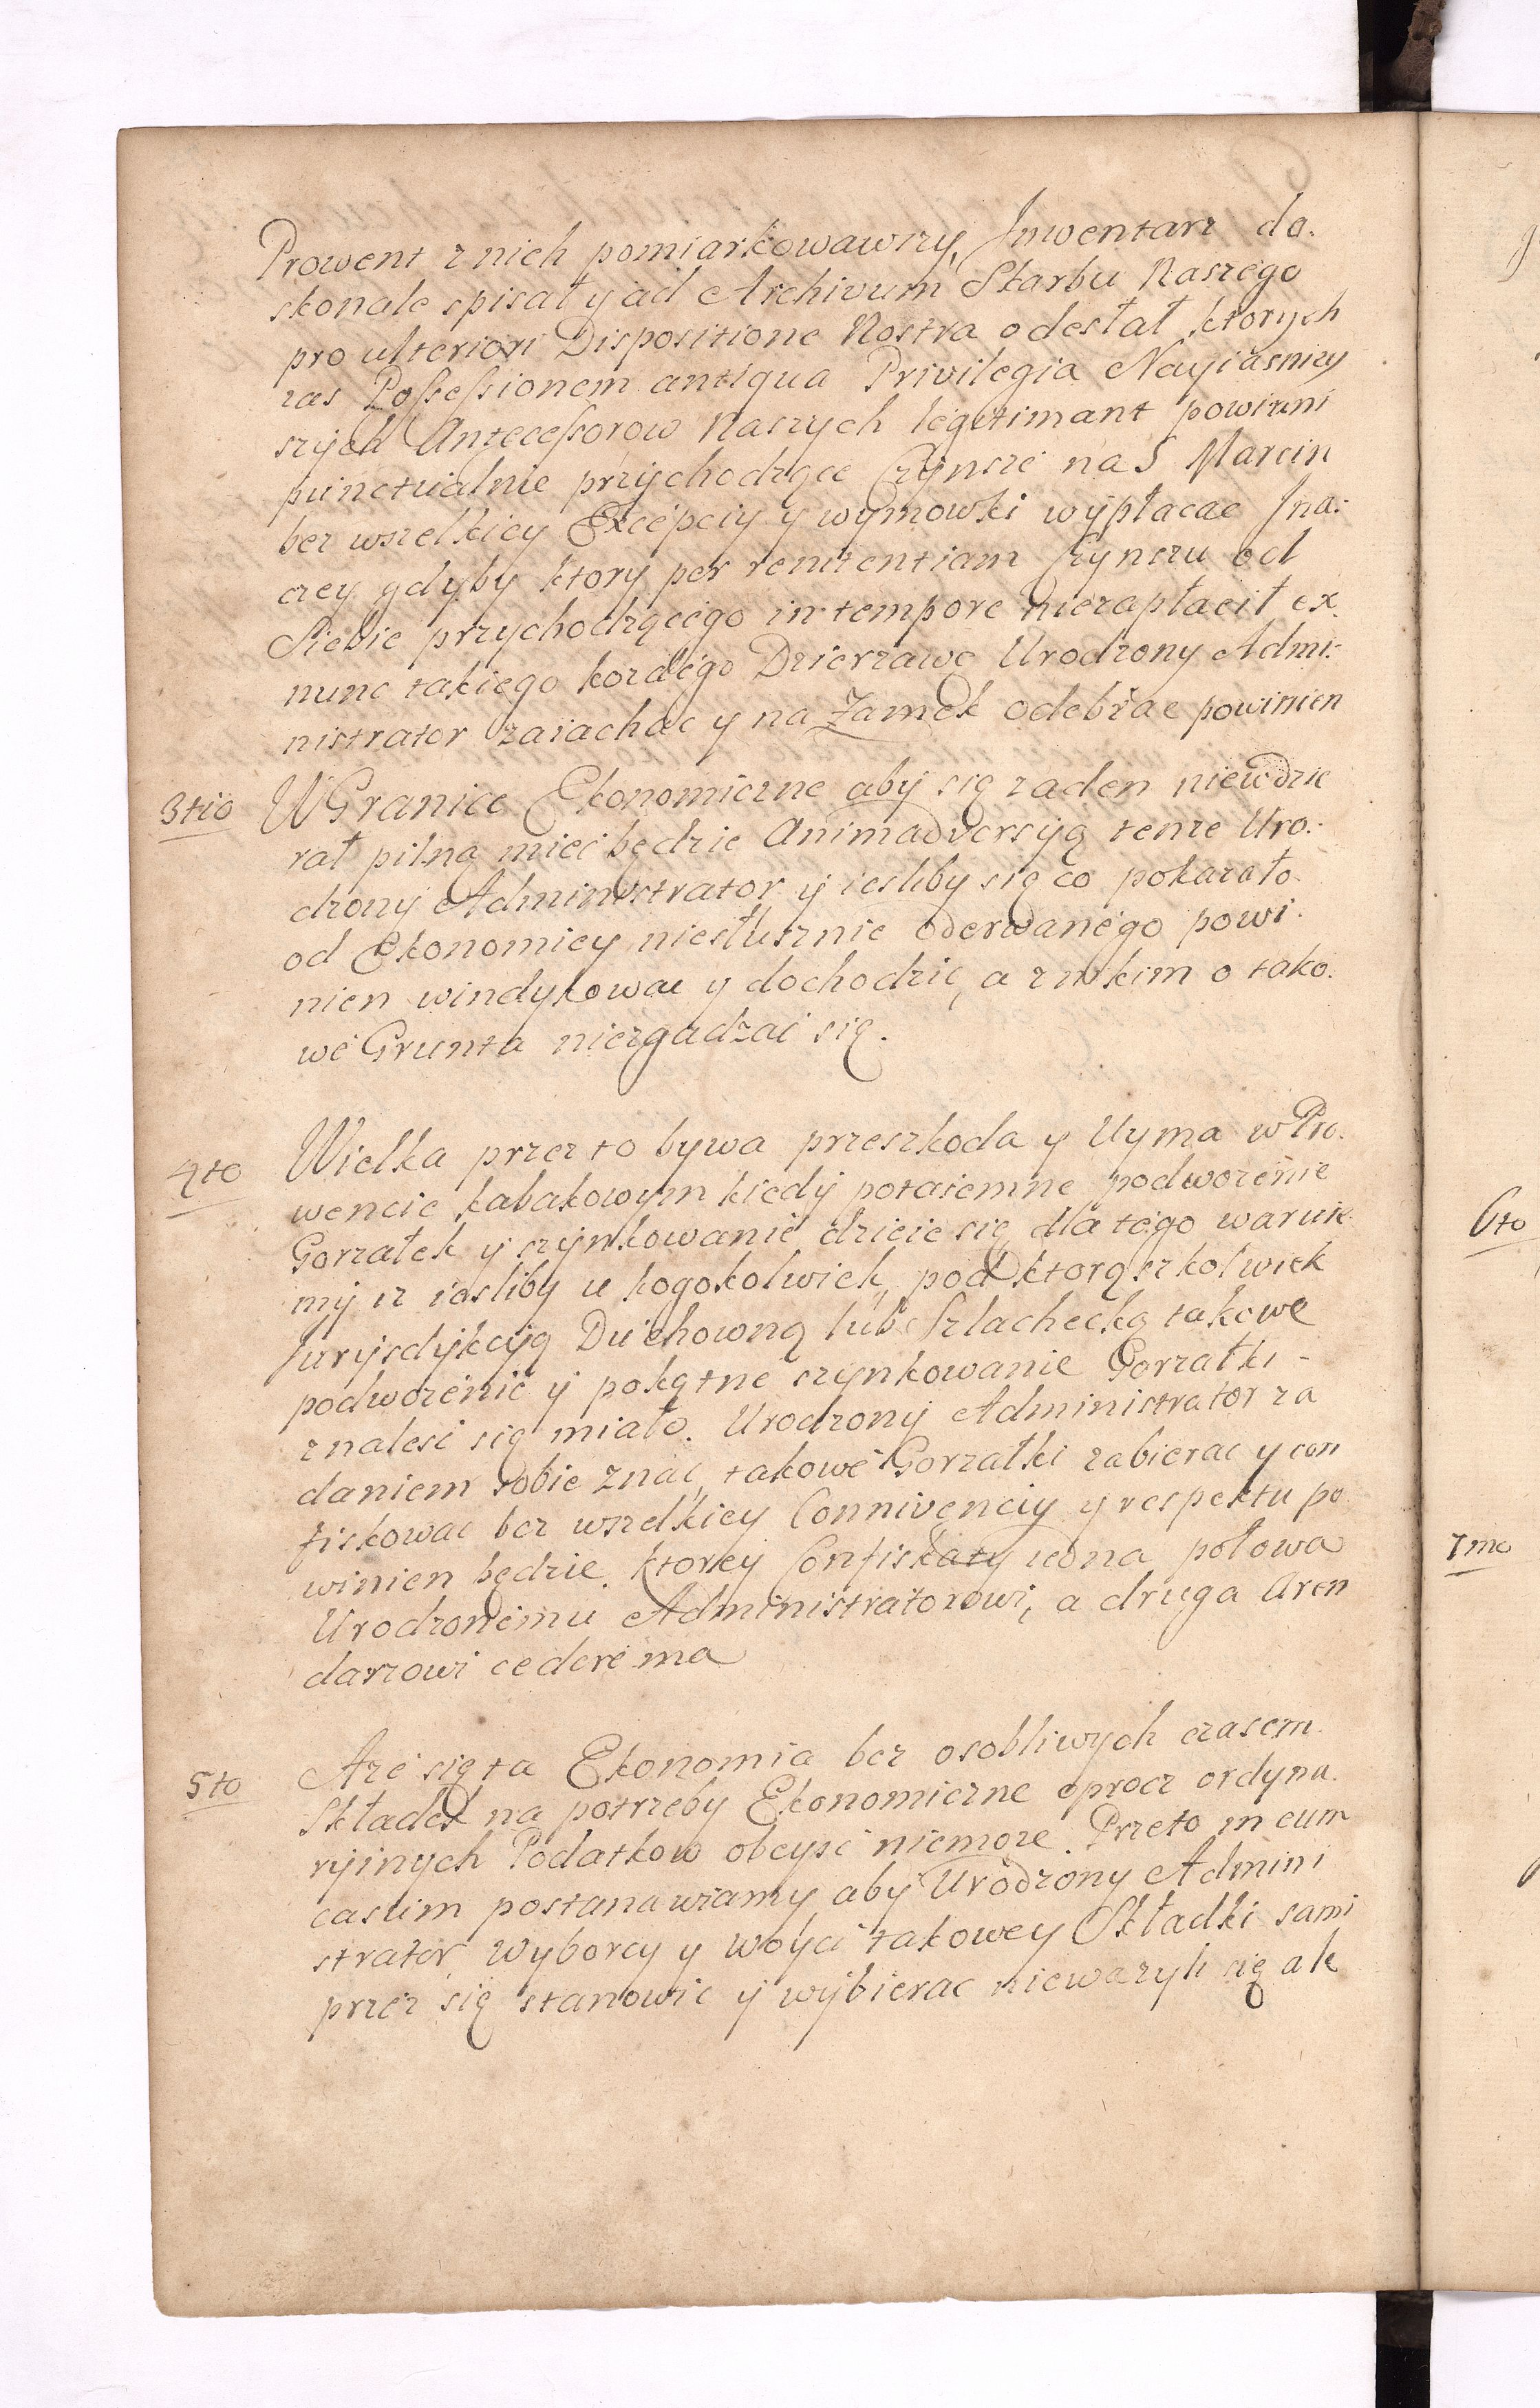 Prowent z nich pomiarkowawszy, Jnwentarz do.
skonale spisał y ad Archivum Skarbu Naszego
pro ulteriori Dispositione Nostra odesłał ktorych
zas Possessionem antiqua Privilegia Nayiasnieÿ
szych Antecessorow Naszych legitimant powinni
punctualnie przychodzące Czynsze na S Marcin
bez wszelkiey Excepciy y wymowki wypłacac Jna:
czey gdyby ktory per renitentiam Czynszu od
Siebie przychodzącego in tempore niezapłacił ex
nunc takiego kozdego Dzierzawę Urodzony Admi:
nistrator zaiachac y na Zamek odebrac powinien
3tio W Granice Ekonomiczne aby się zaden niewdzie
rał pilną mieć będzie Animadversyą tenze Uro:
dzony Administrator y iesliby się co pokazało
od Ekonomiey niesłusznie oderwanego powi.
nien windykowac y dochodzic, a z nikim o tako.
we Grunta niezgadzać się.
4to Wielka przez to bywa przeszkoda y Uyma w Pro.
wencie kabakowym kiedy potaiemne podwozenie
Gorzałek y szynkowanie dzieie się dla tego waruie
my iz iesliby u kogokolwiek, pod ktorąszkolwiek
Jurysdykcyą Duchowną lub Szlachecką takowe
podwozenie y pokątne szynkowanie Gorzałki -
znalesć się miało. Urodzony Administrator za
daniem sobie znac, takowe Gorzałki zabierac y con
fiskowac bez wszelkiey Connivenciy y respektu po
winien będzie. ktorey Confiskaty iedna połowa
Urodzonemu Administratorowi, a druga Aren
darzowi cedere ma
5to Aze się ta Ekonomia bez osobliwych czasem
Składek na potrzeby Ekonomiczne oprocz ordyna.
ryinych Podatkow obeyść niemoze. Przeto in eum
casum postanawiamy aby Urodzony Admini
strator Wyborcy y woyci takowey Składki sami
przez się stanowic y wybierac niewazyli się ale
6to
7mo